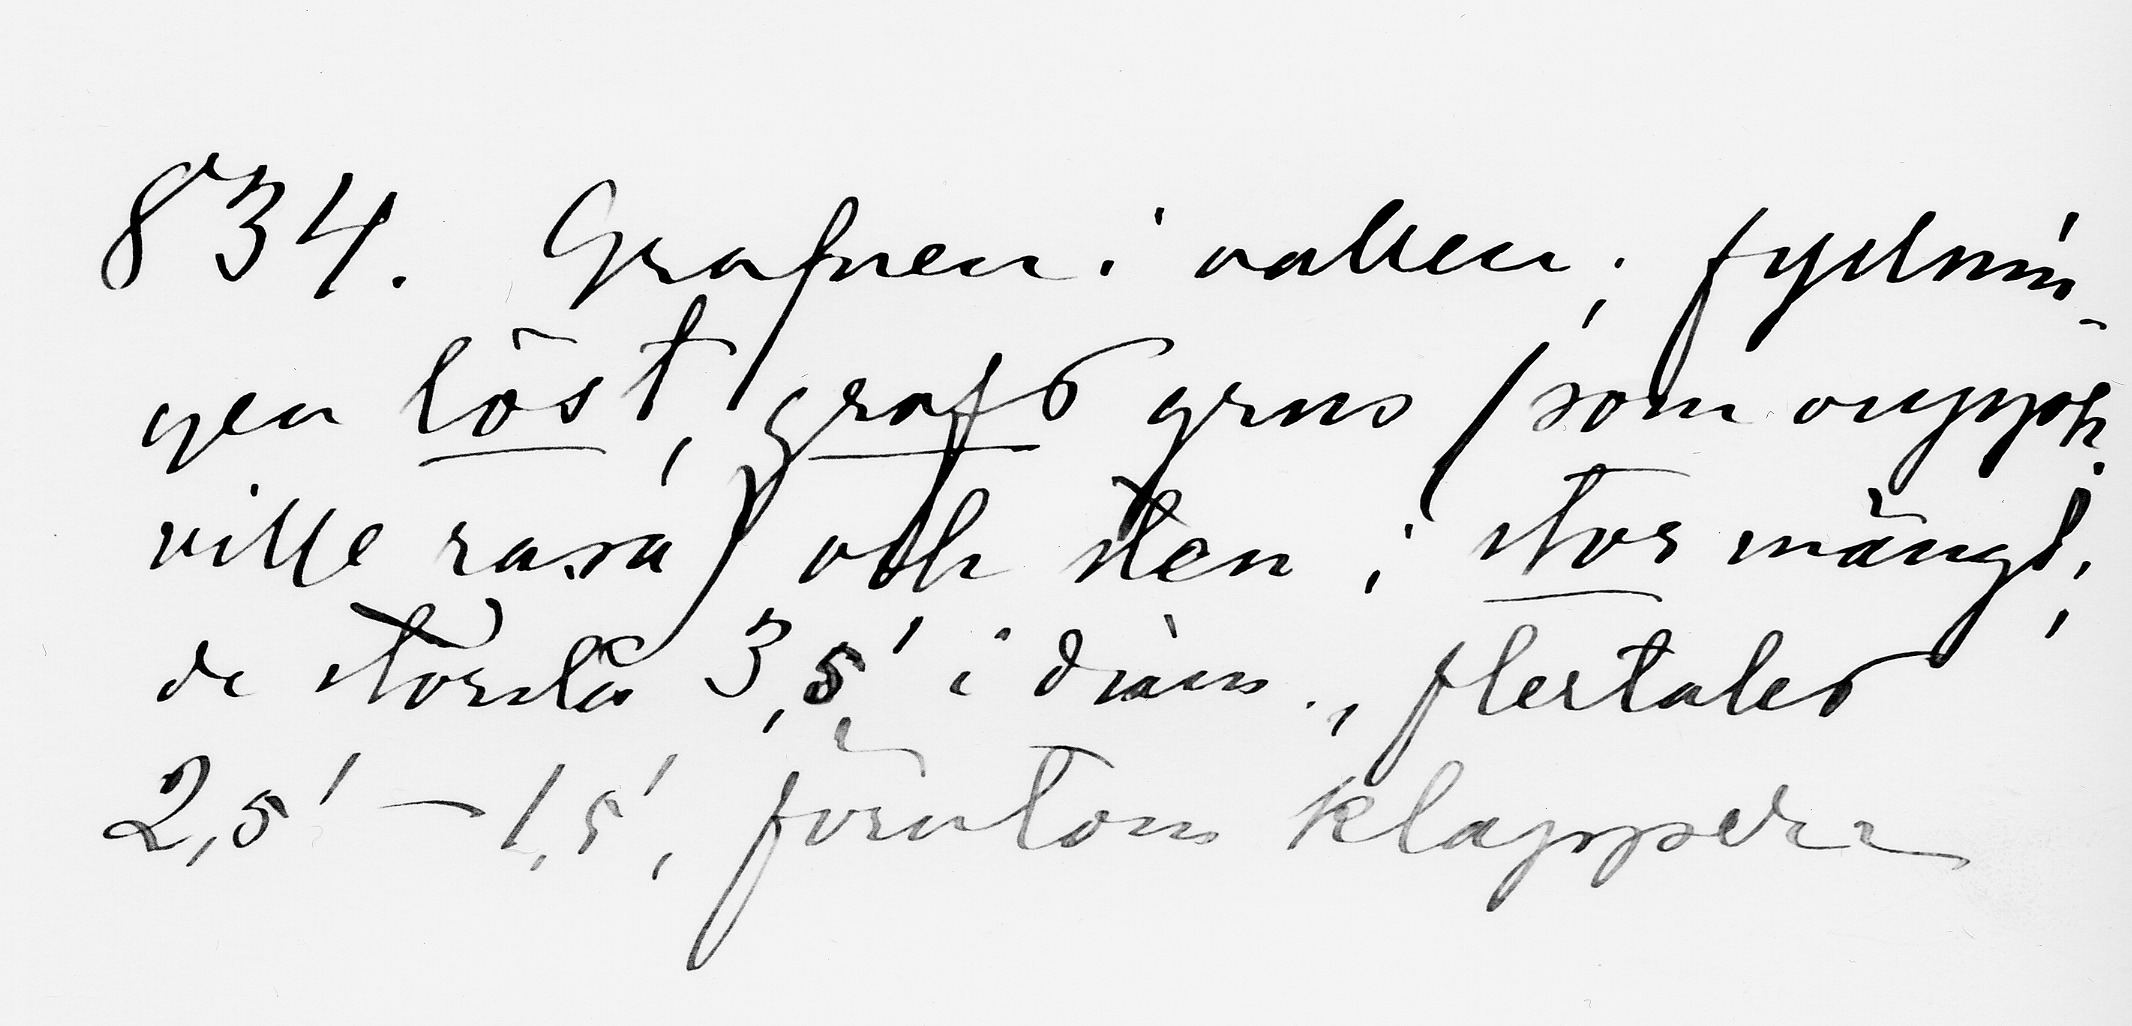 834. Grafven i vallen; fyllnin-
gen löst, groft grus (som
ville rasa) och sten i stor mängd;
de största 3,5' i diam., flertalet
2,5' – 1,5', förutom klapper